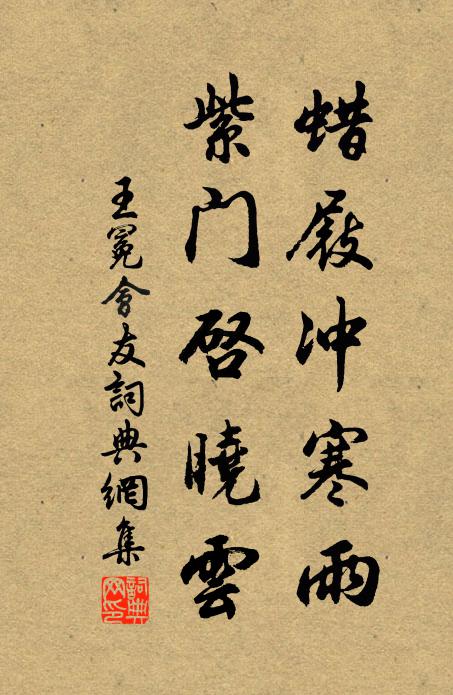 蜡屐冲寒雨
紫门启曉雲
王冕會友詞典網集
詞典网印